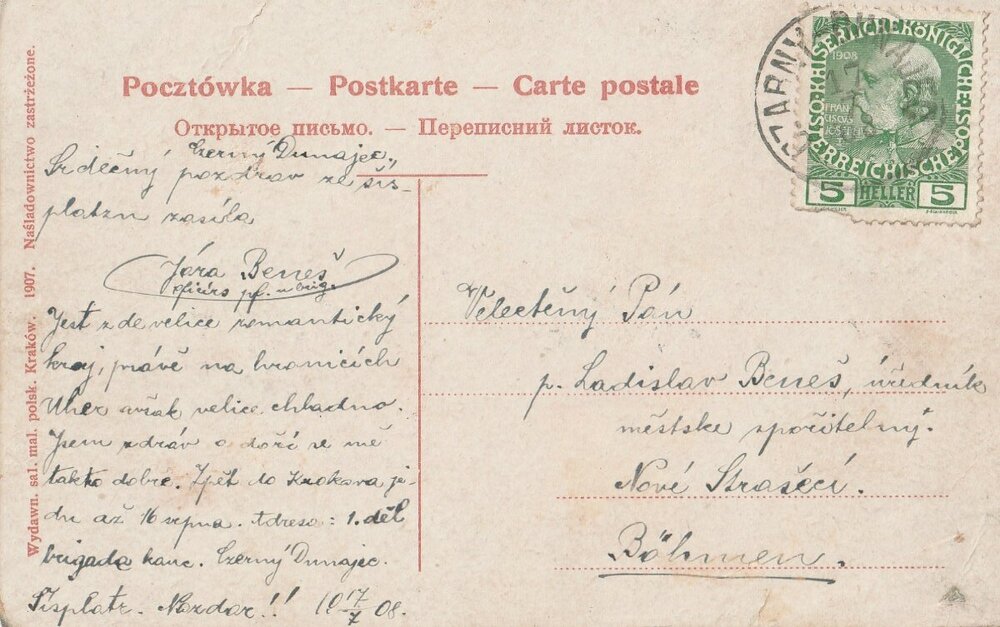 Pocztówka — Postkarte — Carte postale
Открытое письмо. — Переписний листок.
Wydawn. sal. mal. polsk. Kraków. 1907. Naśladownictwo zastrzeżone.
Czerný Dunajec.,
Srdečný pozdrav ze šis-
platzu zasílá
Jára Beneš
Jest zde velice romantický
kraj, právě na hranicích
Uher avšak velice chladno.
Jsem zdráv a daří se mě
takto dobře. Zpět do Krakova je-
du až 16 srpna. Adresa: 1. děl
brigada kanc. Czerný Dunajec.
Šísplatz. Nazdar!! 19 17/7 08.
Velectěný Pán
p. Ladislav Beneš, úředník
městske spořitelny.
Nové Strašecí.
Böhmen.
CZARNY DUNAJEC
17
KAISERLICHE KÖNIGLICHE ÖSTERREICHISCHE POST
1908
FRAN
CISCVS
IOSEPHVS
5 HELLER 5